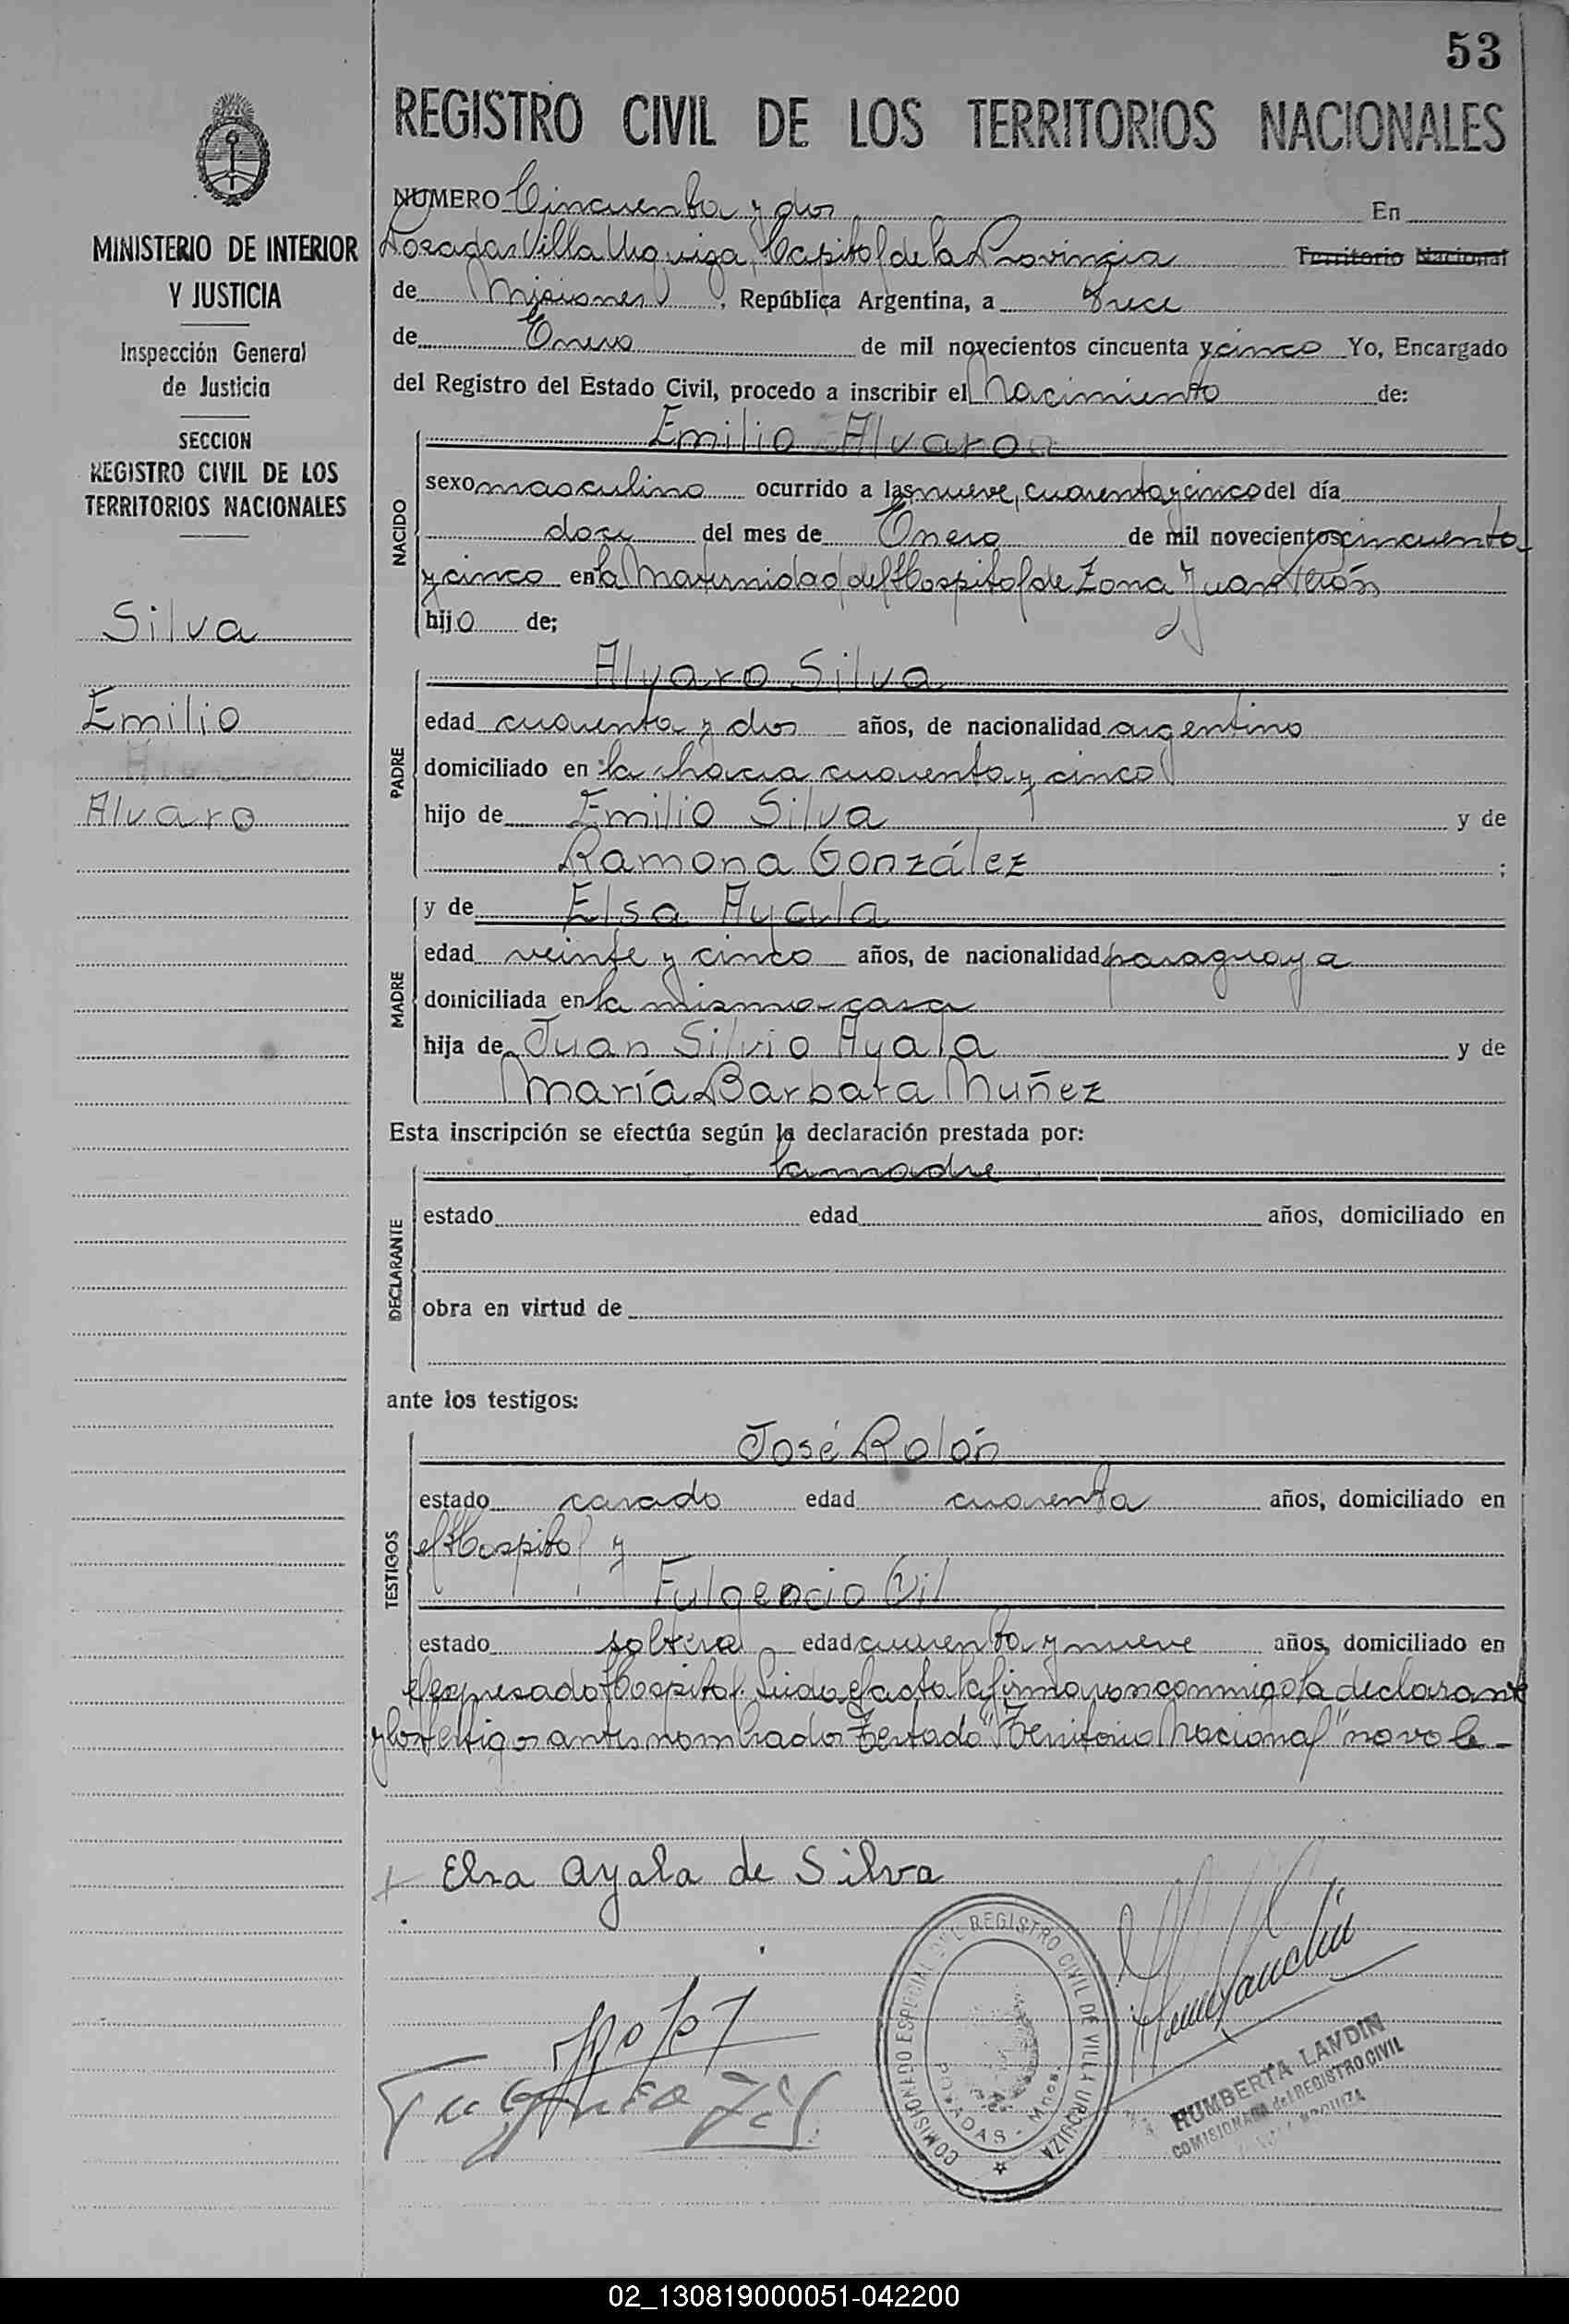 53
REGISTRO CIVIL DE LOS TERRITORIOS NACIONALES
MINISTERIO DE INTERIOR
Y JUSTICIA
Inspección General
de Justicia
SECCION
REGISTRO CIVIL DE LOS
TERRITORIOS NACIONALES
Silva
Emilio
Alvaro
NUMERO Cincuenta y dos En
Posadas Villa Urquiza, Capital de la Provincia Territorio Nacional
de Misiones, República Argentina, a trece
de Enero de mil novecientos cincuenta y cinco Yo, Encargado
del Registro del Estado Civil, procedo a inscribir el Nacimiento de:
NACIDO
Emilio Alvaro
sexo masculino ocurrido a las nueve, cuarenta y cinco del día
doce del mes de Enero de mil novecientos cincuenta
y cinco en la Maternidad del Hospital de Zona Juan Perón
hijo de;
PADRE
Alvaro Silva
edad cuarenta y dos años, de nacionalidad argentino
domiciliado en la chacra cuarenta y cinco
hijo de Emilio Silva y de
Ramona González ;
MADRE
y de Elsa Ayala
edad veinte y cinco años, de nacionalidad paraguaya
domiciliada en la misma casa
hija de Juan Silvio Ayala y de
María Barbara Nuñez
Esta inscripción se efectúa según la declaración prestada por:
DECLARANTE
la madre
estado edad años, domiciliado en
obra en virtud de
ante los testigos:
TESTIGOS
José Rolón
estado casado edad cuarenta años, domiciliado en
el Hospital y
Fulgencio Gil
estado soltero edad cuarenta y nueve años, domiciliado en
el expresado Hospital. Leida el acta la firmaron conmigo la declarante
y los testigos antes nombrados Testado "Territorio Nacional" no vale-
Elsa Ayala de Silva
COMISIONADO ESPECIAL DEL REGISTRO CIVIL DE VILLA URQUIZA
POSADAS - Mnes.
HUMBERTA LANDIN
COMISIONADA del REGISTRO CIVIL
02_130819000051-042200